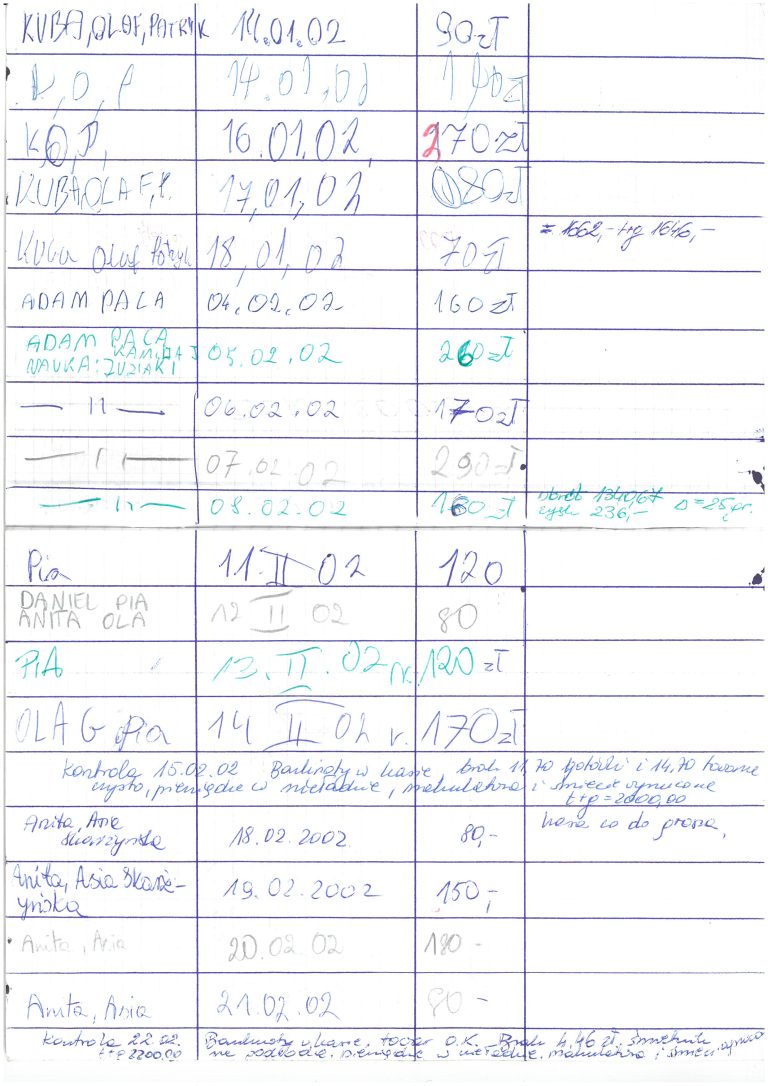 KUBA, OLAF, PATRYK 14.01.02 90 zł
K, O, P 14.01.02 190 zł
K, O, P, 16.01.02, 270 zł
KUBA, OLAF, P. 17,01,02 80 zł
Kuba Olaf Patryk 18,01,02 70 zł = 1662,- t+g 1646,-
ADAM PACA 04.02.02 160 zł
ADAM PACA
KAMILA J
NAUKA: ZUZIAKI 05.02.02 260 zł
— 11 — 06.02.02 170 zł
— 11 — 07.02.02 290 zł
— 11 — 08.02.02 160 zł obrót 1340,67
zysk 236,- Δ = 25 gr.
Pia 11 II 02 120
DANIEL PIA
ANITA OLA 12 II 02 80
PiA 13. II. 02 r. 120 zł
OLA G Pia 14 II 02 r. 170 zł
Kontrola 15.02.02 Banknoty w kasie brak 11,70 gotówki i 14,70 towaru
czysto, pieniądze w nieładzie, makulatura i śmieci wyrzucone
t+g = 2000,00
Anita, Asia
Skarżyńska 18.02.2002 80,- kasa co do grosza,
Anita, Asia Skarż-
yńska 19.02.2002 150,-
Anita, Asia 20.02.02 180 -
Anita, Asia 21.02.02 80 -
Kontrola 22.02. Banknoty w kasie, towar O.K. Brak 4,46 zł, śmietnik
t+g 2200,00 nie podkładzie, pieniądze w nieładzie, makulatura i śmieci